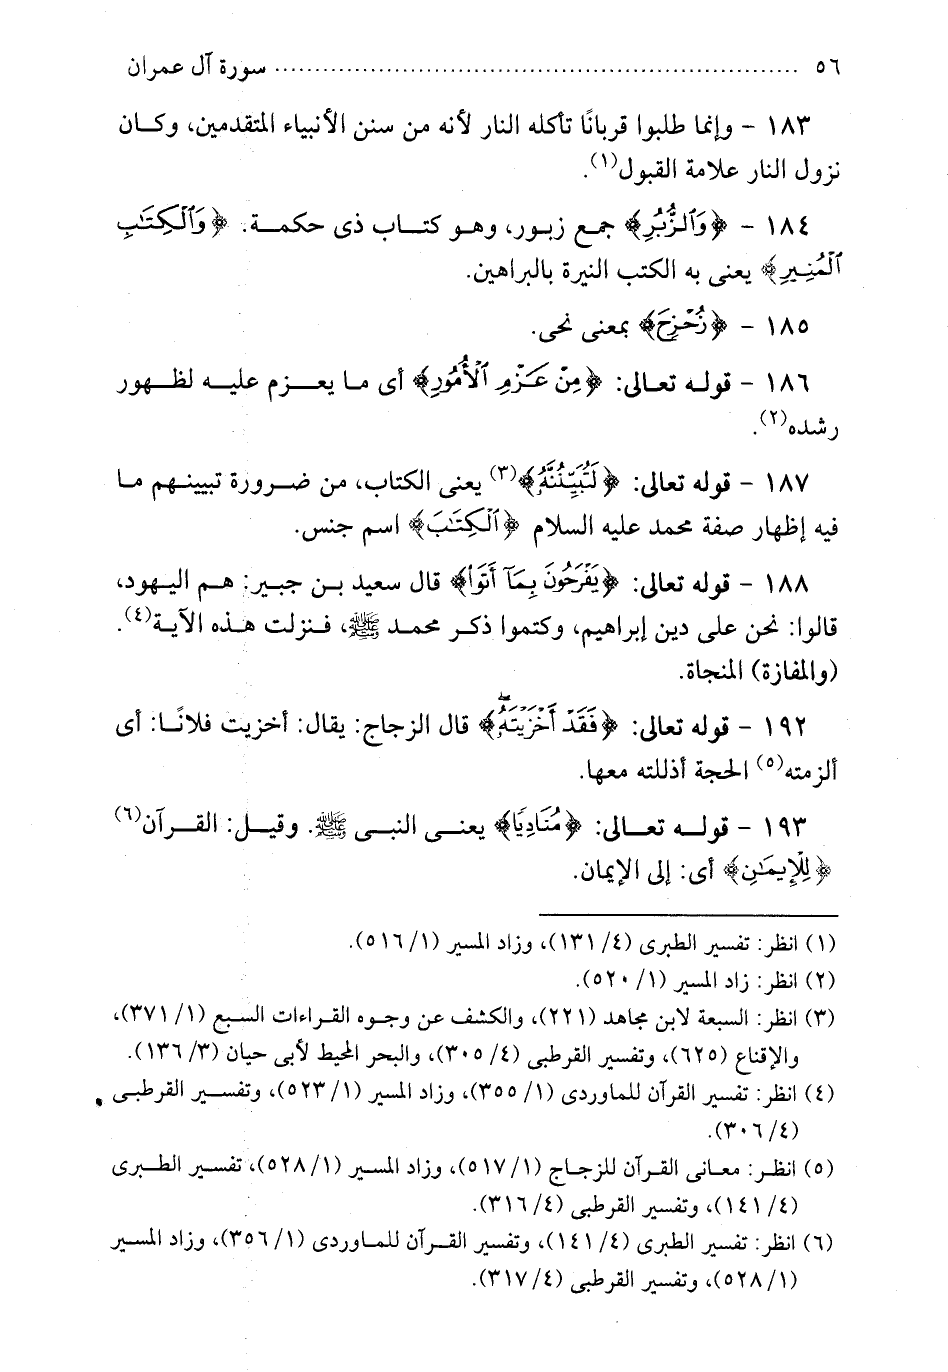 ٥٦ .................................................................. سورة آل عمران
١٨٣ - وإنما طلبوا قربانًا تأكله النار لأنه من سنن الأنبياء المتقدمين، وكان
نزول النار علامة القبول(١).
١٨٤ - ﴿وَٱلزُّبُرِ﴾ جمع زبور، وهو كتاب ذى حكمة. ﴿وَٱلْكِتَـٰبِ
ٱلْمُنِيرِ﴾ يعنى به الكتب النيرة بالبراهين.
١٨٥ - ﴿زُحْزِحَ﴾ بمعنى نحى.
١٨٦ - قوله تعالى: ﴿مِنْ عَزْمِ ٱلْأُمُورِ﴾ أى ما يعزم عليه لظهور
رشده(٢).
١٨٧ - قوله تعالى: ﴿لَتُبَيِّنُنَّهُۥ﴾(٣) يعنى الكتاب، من ضرورة تبيينهم ما
فيه إظهار صفة محمد عليه السلام ﴿ٱلْكِتَـٰبَ﴾ اسم جنس.
١٨٨ - قوله تعالى: ﴿يَفْرَحُونَ بِمَآ أَتَوا۟﴾ قال سعيد بن جبير: هم اليهود،
قالوا: نحن على دين إبراهيم، وكتموا ذكر محمد ﷺ، فنزلت هذه الآية(٤).
(والمفازة) المنجاة.
١٩٢ - قوله تعالى: ﴿فَقَدْ أَخْزَيْتَهُۥ﴾ قال الزجاج: يقال: أخزيت فلانًا: أى
ألزمته(٥) الحجة أذللته معها.
١٩٣ - قوله تعالى: ﴿مُنَادِيًا﴾ يعنى النبى ﷺ. وقيل: القرآن(٦)
﴿لِلْإِيمَـٰنِ﴾ أى: إلى الإيمان.
(١) انظر: تفسير الطبرى (٤/ ١٣١)، وزاد المسير (١/ ٥١٦).
(٢) انظر: زاد المسير (١/ ٥٢٠).
(٣) انظر: السبعة لابن مجاهد (٢٢١)، والكشف عن وجوه القراءات السبع (١/ ٣٧١)،
والإقناع (٦٢٥)، وتفسير القرطبى (٤/ ٣٠٥)، والبحر المحيط لأبى حيان (٣/ ١٣٦).
(٤) انظر: تفسير القرآن للماوردى (١/ ٣٥٥)، وزاد المسير (١/ ٥٢٣)، وتفسير القرطبى
(٤/ ٣٠٦).
(٥) انظر: معانى القرآن للزجاج (١/ ٥١٧)، وزاد المسير (١/ ٥٢٨)، تفسير الطبرى
(٤/ ١٤١)، وتفسير القرطبى (٤/ ٣١٦).
(٦) انظر: تفسير الطبرى (٤/ ١٤١)، وتفسير القرآن للماوردى (١/ ٣٥٦)، وزاد المسير
(١/ ٥٢٨)، وتفسير القرطبى (٤/ ٣١٧).